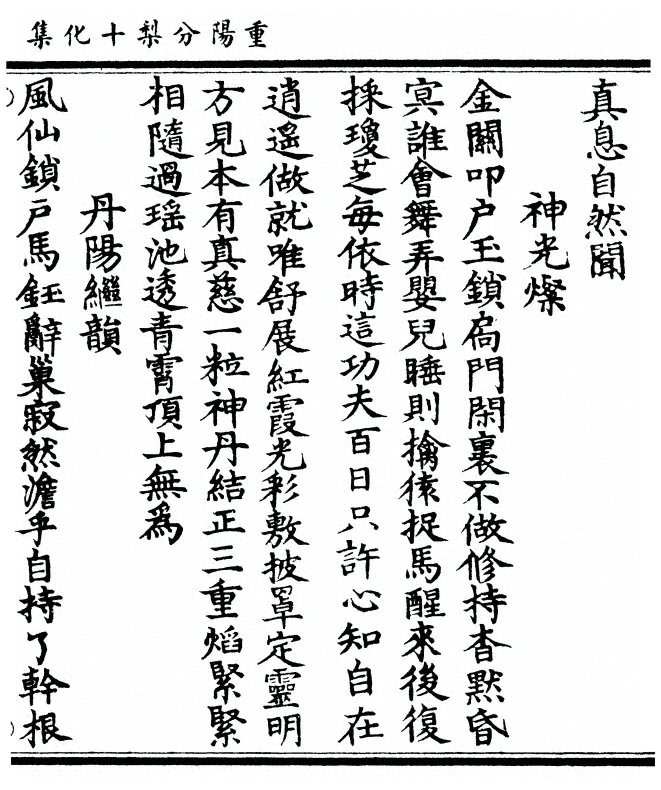 重陽分梨十化集
真息自然聞
神光燦
金關叩户玉鎖扄門閑裏不做修持杳默昏
㝠誰會舞弄嬰兒睡則擒猿捉馬醒來後復
採瓊芝每依時這功夫百日只許心知自在
逍遥做就唯舒展紅霞光彩敷披罩定靈明
方見本有真慈一粒神丹結正三重熖緊緊
相隨過瑶池透青霄頂上無爲
丹陽繼韻
風仙鎖戸馬鈺辭巢寂然澹乎自持了幹根